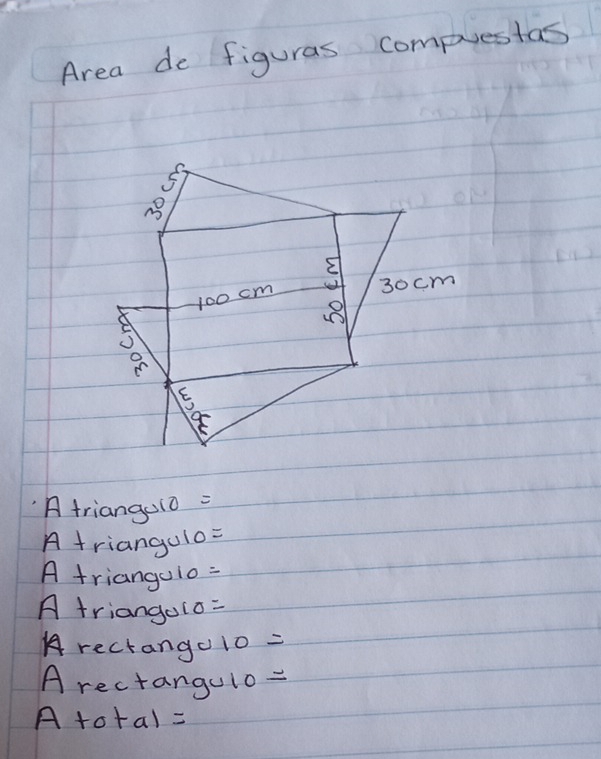 Area de figuras compuestas
30 cm
30 cm
100 cm
50 cm
30 cm
30 cm
A triangulo =
A triangulo =
A triangulo =
A triangulo =
A rectangulo =
A rectangulo =
A total =